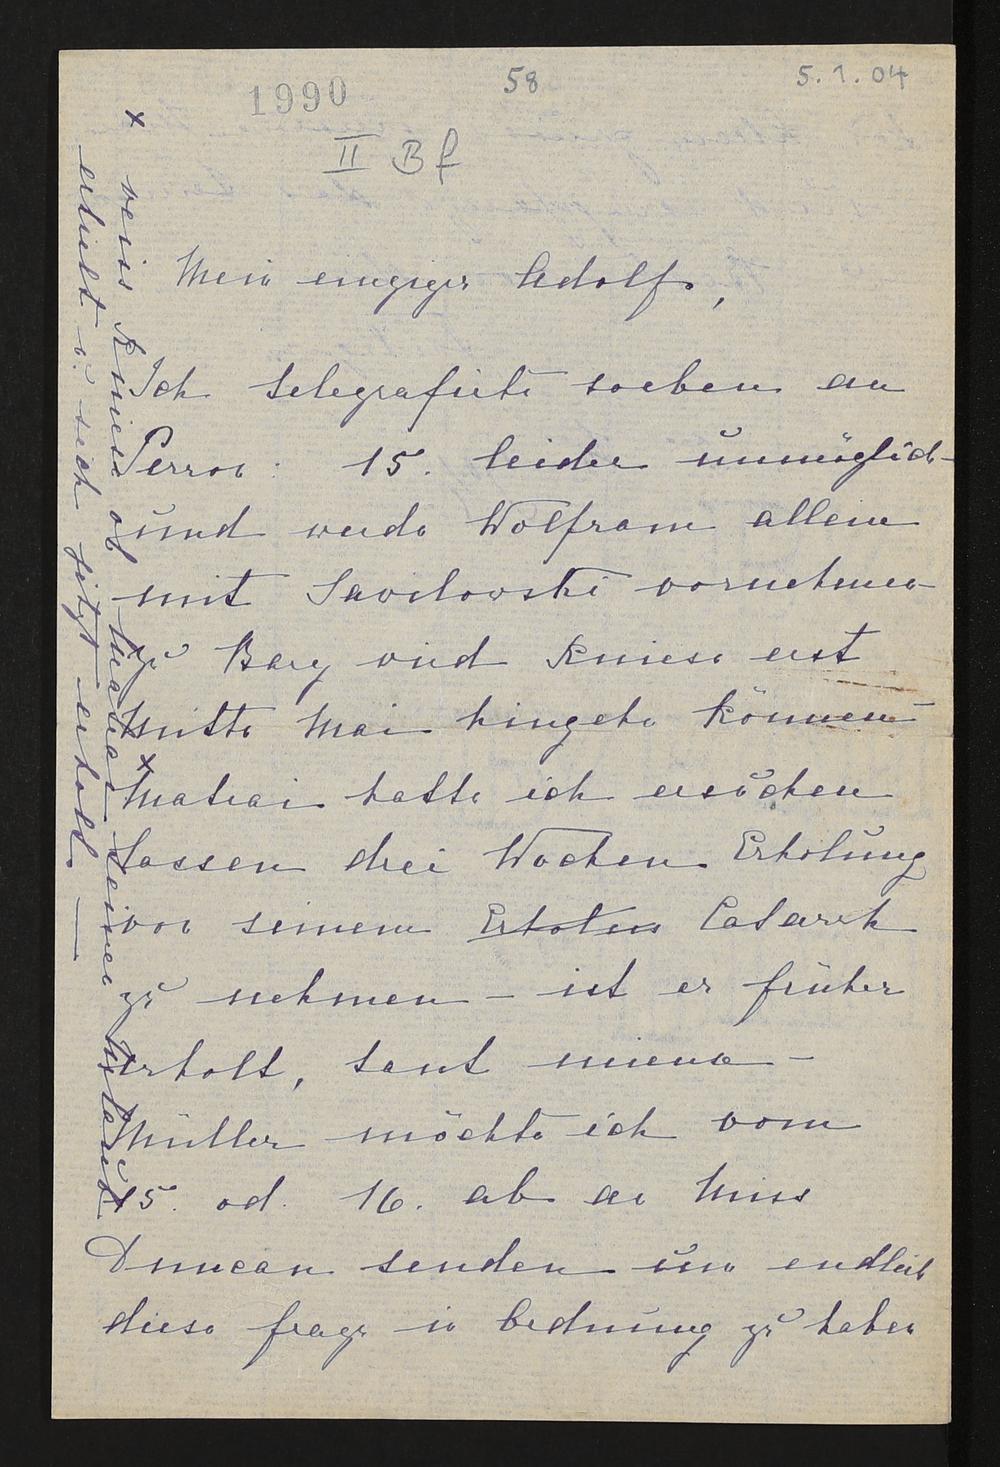 1990
58
5. 1. 04
II Bf
Mein einziger Adolf,
Ich telegrafirte soeben an
Perron: 15. leider unmöglich
und werde Wolfram allein
mit Savilovski vornehmen
zu Bary und Kniese erst
Mitte Mai hingehe können
x
Matrai hatte ich ersuchen
lassen drei Wochen Erholung
von seinem Erholun Catarrh
zu nehmen – ist er früher
erholt, tant mieux –
Müller möchte ich vom
15. od. 16. ab an Miss
Duncan senden um endlich
diese Frage in Ordnung zu haben
x weiss Kniese ob Matrai seinen Urlaub
erhielt u. sich jetzt erholt —